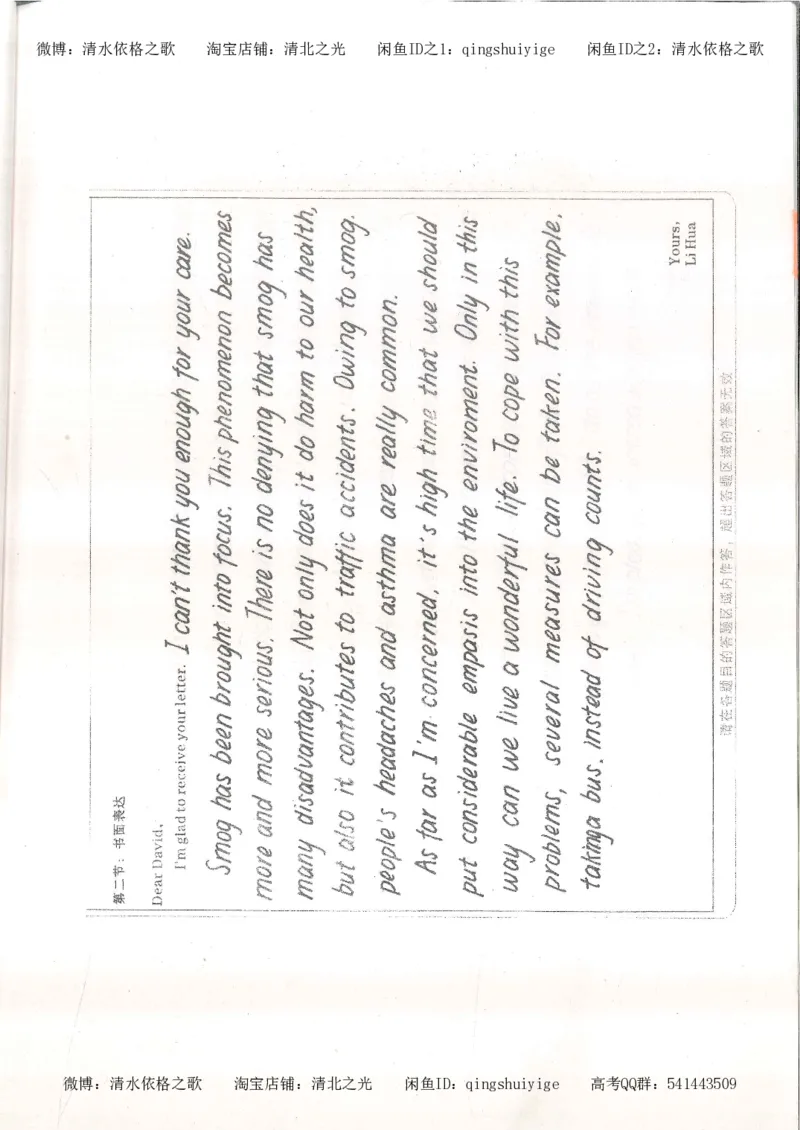 微博：清水依格之歌 淘宝店铺：清北之光 闲鱼ID之1：qingshuiyige 闲鱼ID之2：清水依格之歌
第二节：书面表达
Dear David,
I'm glad to receive your letter. I can't thank you enough for your care.
Smog has been brought into focus. This phenomenon becomes
more and more serious. There is no denying that smog has
many disadvantages. Not only does it do harm to our health,
but also it contributes to traffic accidents. Owing to smog.
people's headaches and asthma are really common.
As far as I'm concerned, it's high time that we should
put considerable empasis into the enviroment. Only in this
way can we live a wonderful life. To cope with this
problems, several measures can be taken. For example,
takinga bus, instead of driving counts.
Yours,
Li Hua
请在各题目的答题区域内作答，超出答题区域的答案无效
微博：清水依格之歌 淘宝店铺：清北之光 闲鱼ID：qingshuiyige 高考QQ群：541443509